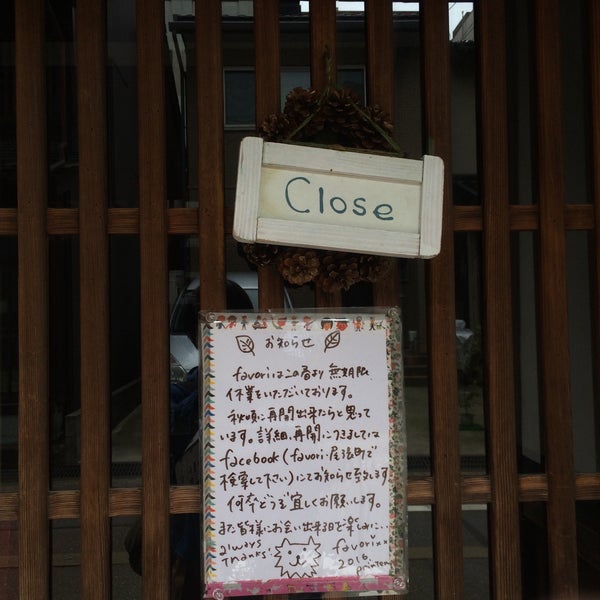 Close
お知らせ
favoriはこの春より無期限
休業をいただいております。
秋頃に再開出来たらと思って
います。詳細、再開につきましては
facebook(favori・尾張町で
検索して下さい)にてお知らせ致します
何卒どうぞ宜しくお願いします。
また皆様にお会い出来る日を楽しみに…
always
thanks!
favori
2016